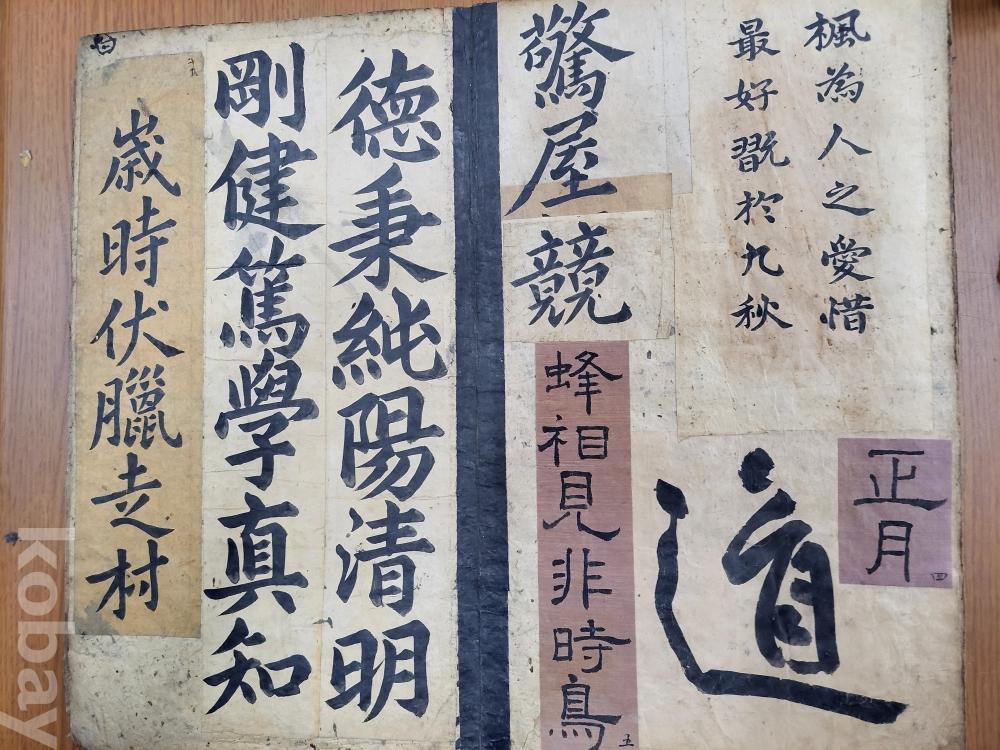 楓為人之愛惜
最好翫於九秋
正月
四
道
驚屋
競
蜂祖見非時鳥
五
德秉純陽清明
剛健篤學真知
歲時伏臘走村
kobay